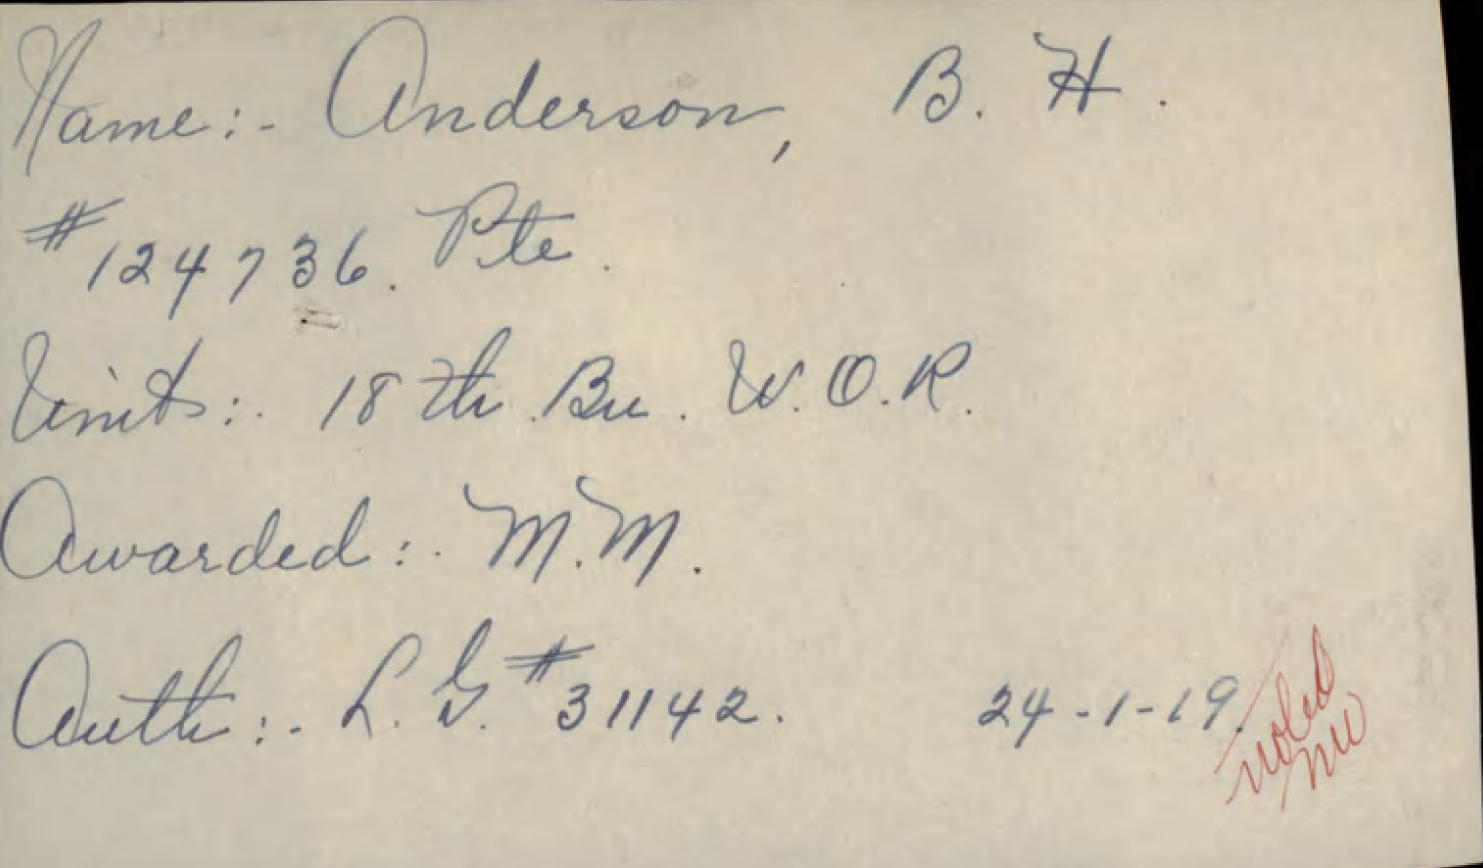 Name:- Anderson, B. H.
#124736. Pte.
Unit:. 18th. Bn. W.O.R.
Awarded:. M.M.
Auth:- L.G. #31142. 24-1-19.
noted